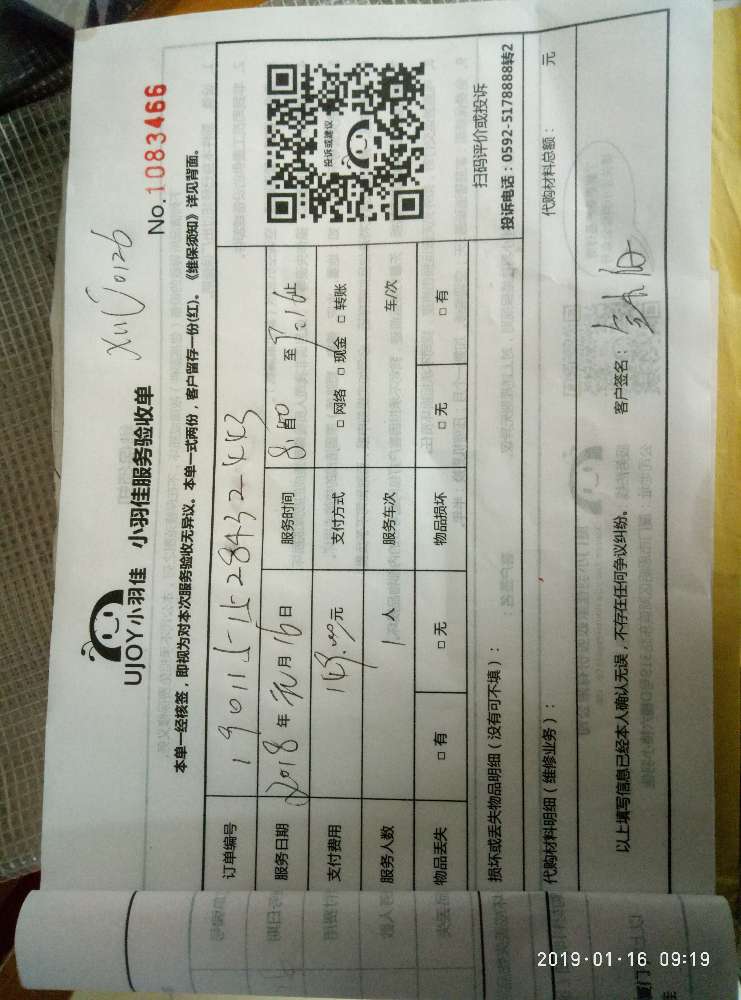 UJOY小羽佳 小羽佳服务验收单
No.1083466
本单一经核签，即视为对本次服务验收无异议。本单一式两份，客户留存一份(红)。《维保须知》详见背面。
订单编号
服务日期 2018 年 元 月 16 日 服务时间 8:50 至 9:16 止
支付费用 149.00 元 支付方式 □ 网络 □ 现金 □ 转账
服务人数 1 人 服务车次 车/次
物品丢失 □ 有 □ 无 物品损坏 □ 无 □ 有
投诉或建议
扫码评价或投诉
投诉电话：0592-5178888转2
损坏或丢失物品明细（没有可不填）：
代购材料明细（维修业务）： 代购材料总额： 元
以上填写信息已经本人确认无误，不存在任何争议纠纷。 客户签名：
2019-01-16 09:19